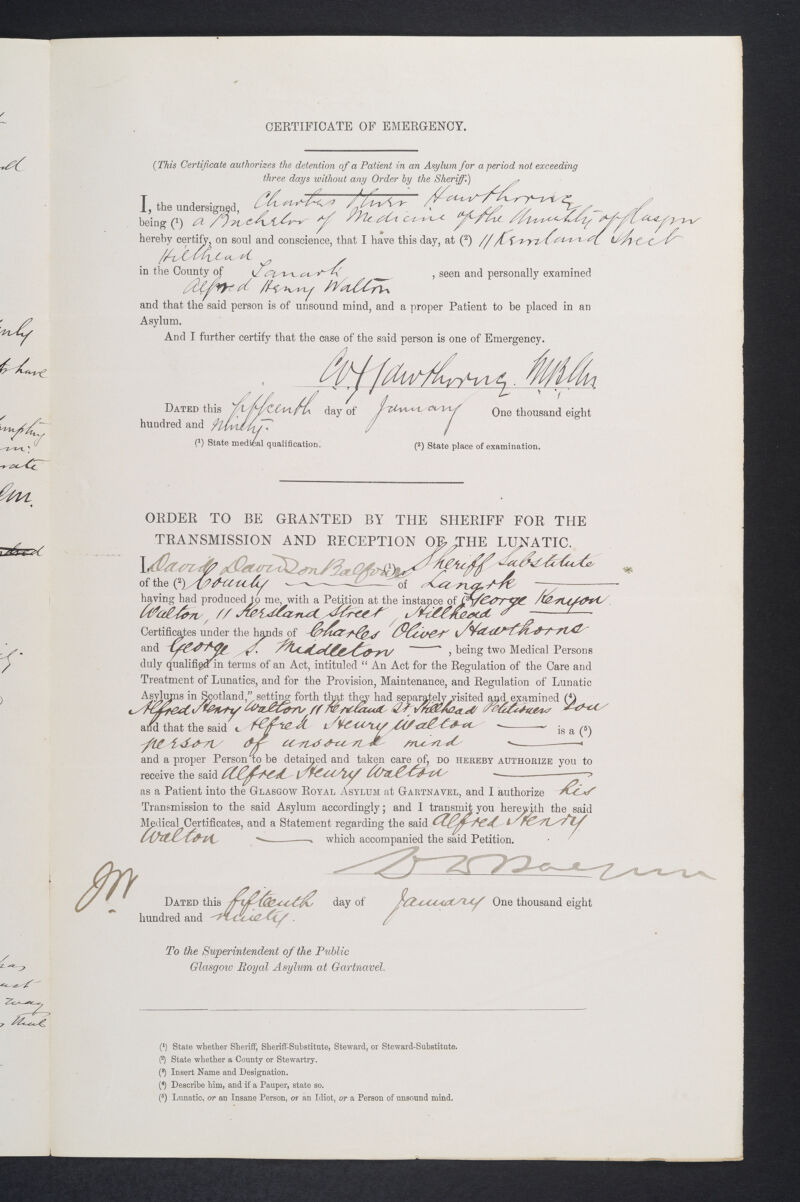 CERTIFICATE OF EMERGENCY.
(This Certificate authorizes the detention of a Patient in an Asylum for a period not exceeding
three days without any Order by the Sheriff.)
I, the undersigned, Charles Oliver Hawthorne
being (¹) a Bachelor of Medicine of the University of Glasgow
hereby certify, on soul and conscience, that I have this day, at (²) 11 Kersland Street
Hillhead
in the County of Lanark , seen and personally examined
Alfred Henry Walton
and that the said person is of unsound mind, and a proper Patient to be placed in an
Asylum.
And I further certify that the case of the said person is one of Emergency.
C O Hawthorne. M.B. C.M.
DATED this fifteenth day of January One thousand eight
hundred and Ninety.
(¹) State medical qualification. (²) State place of examination.
ORDER TO BE GRANTED BY THE SHERIFF FOR THE
TRANSMISSION AND RECEPTION OF THE LUNATIC.
I, David Davidson Balfour (¹) Sheriff Substitute
of the (²) County of Lanark
having had produced to me, with a Petition at the instance of (³) George Kenyon
Walton, 11 Kersland Street, Hillhead
Certificates under the hands of Charles Oliver Hawthorne
and George S. Middleton , being two Medical Persons
duly qualified in terms of an Act, intituled "An Act for the Regulation of the Care and
Treatment of Lunatics, and for the Provision, Maintenance, and Regulation of Lunatic
Asylums in Scotland," setting forth that they had separately visited and examined (⁴)
Alfred Henry Walton 11 Kersland St Hillhead Petitioners Son
and that the said Alfred Henry Walton is a (⁵)
person of unsound mind
and a proper Person to be detained and taken care of, DO HEREBY AUTHORIZE you to
receive the said Alfred Henry Walton
as a Patient into the GLASGOW ROYAL ASYLUM AT GARTNAVEL, and I authorize his
Transmission to the said Asylum accordingly; and I transmit you herewith the said
Medical Certificates, and a Statement regarding the said Alfred Henry
Walton which accompanied the said Petition.
D D Balfour
DATED this fifteenth day of January One thousand eight
hundred and ninety.
To the Superintendent of the Public
Glasgow Royal Asylum at Gartnavel.
(¹) State whether Sheriff, Sheriff-Substitute, Steward, or Steward-Substitute.
(²) State whether a County or Stewartry.
(³) Insert Name and Designation.
(⁴) Describe him, and if a Pauper, state so.
(⁵) Lunatic, or an Insane Person, or an Idiot, or a Person of unsound mind.